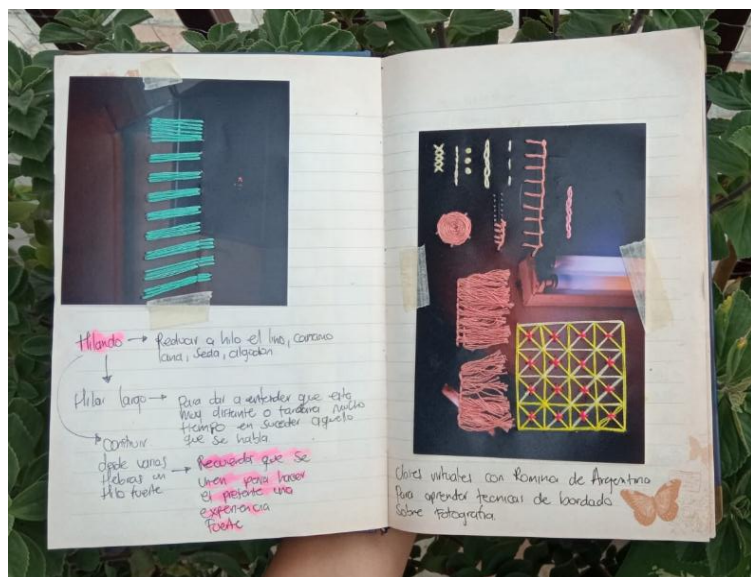 Hilando → Reducir a hilo el lino, cañamo
lana, seda, algodón
Hilar largo → Para dar a entender que esta
muy distante o tardara mucho
tiempo en suceder aquello
que se habla.
Construir
desde varias
Hebras un
Hilo fuerte
→ Recuerdos que se
unen para hacer
el presente una
experiencia
Fuerte
Clases virtuales con Romina de Argentina
Para aprender tecnicas de bordado
sobre Fotografia.